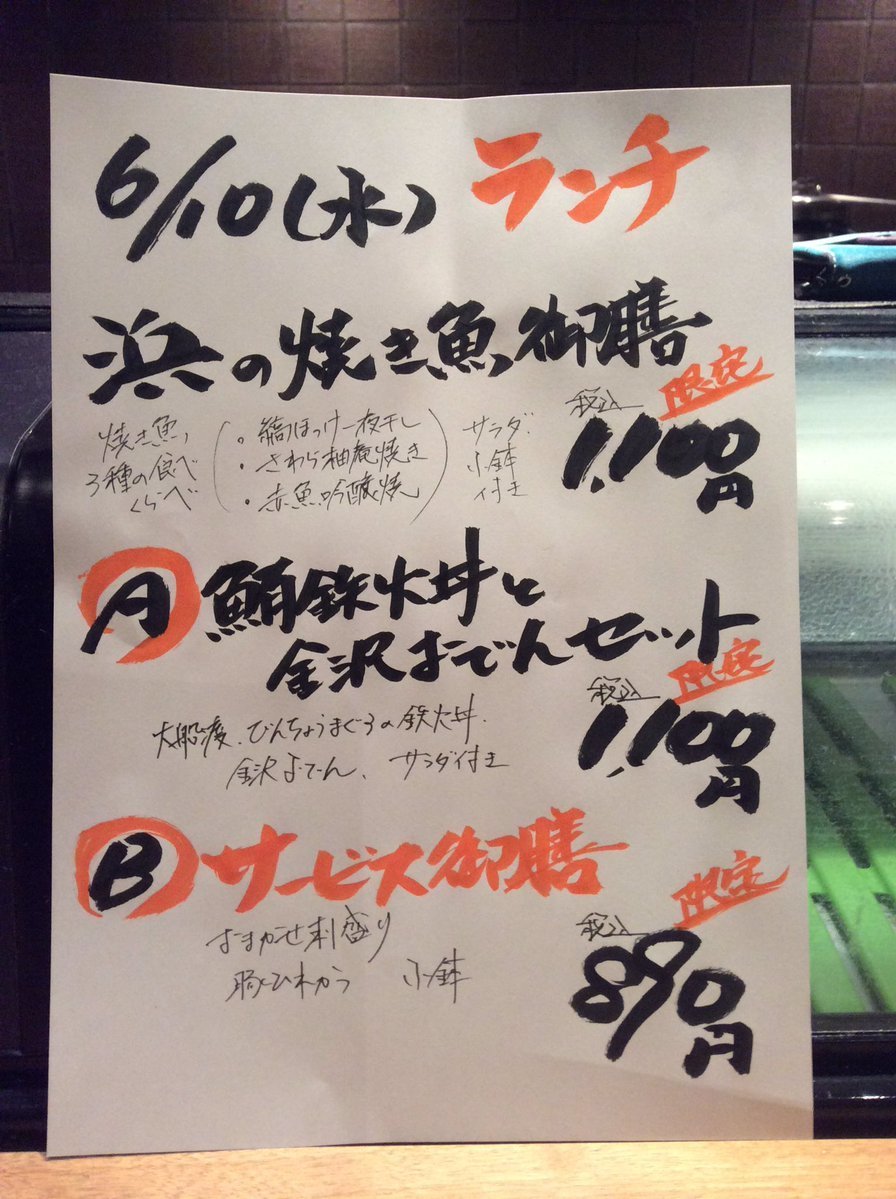 6/10(水) ランチ
浜の焼き魚御膳
焼き魚、
3種の食べ
くらべ
・縞ほっけ一夜干し
・さわら柚庵焼き
・赤魚吟醸焼
サラダ、
小鉢
付き
限定
税込
1,100円
A 鮪鉄火丼と
金沢おでんセット
限定
税込
1,100円
大船渡、びんちょうまぐろの鉄火丼、
金沢おでん、サラダ付き
B サービス御膳
限定
税込
890円
おまかせ刺盛り
小鉢